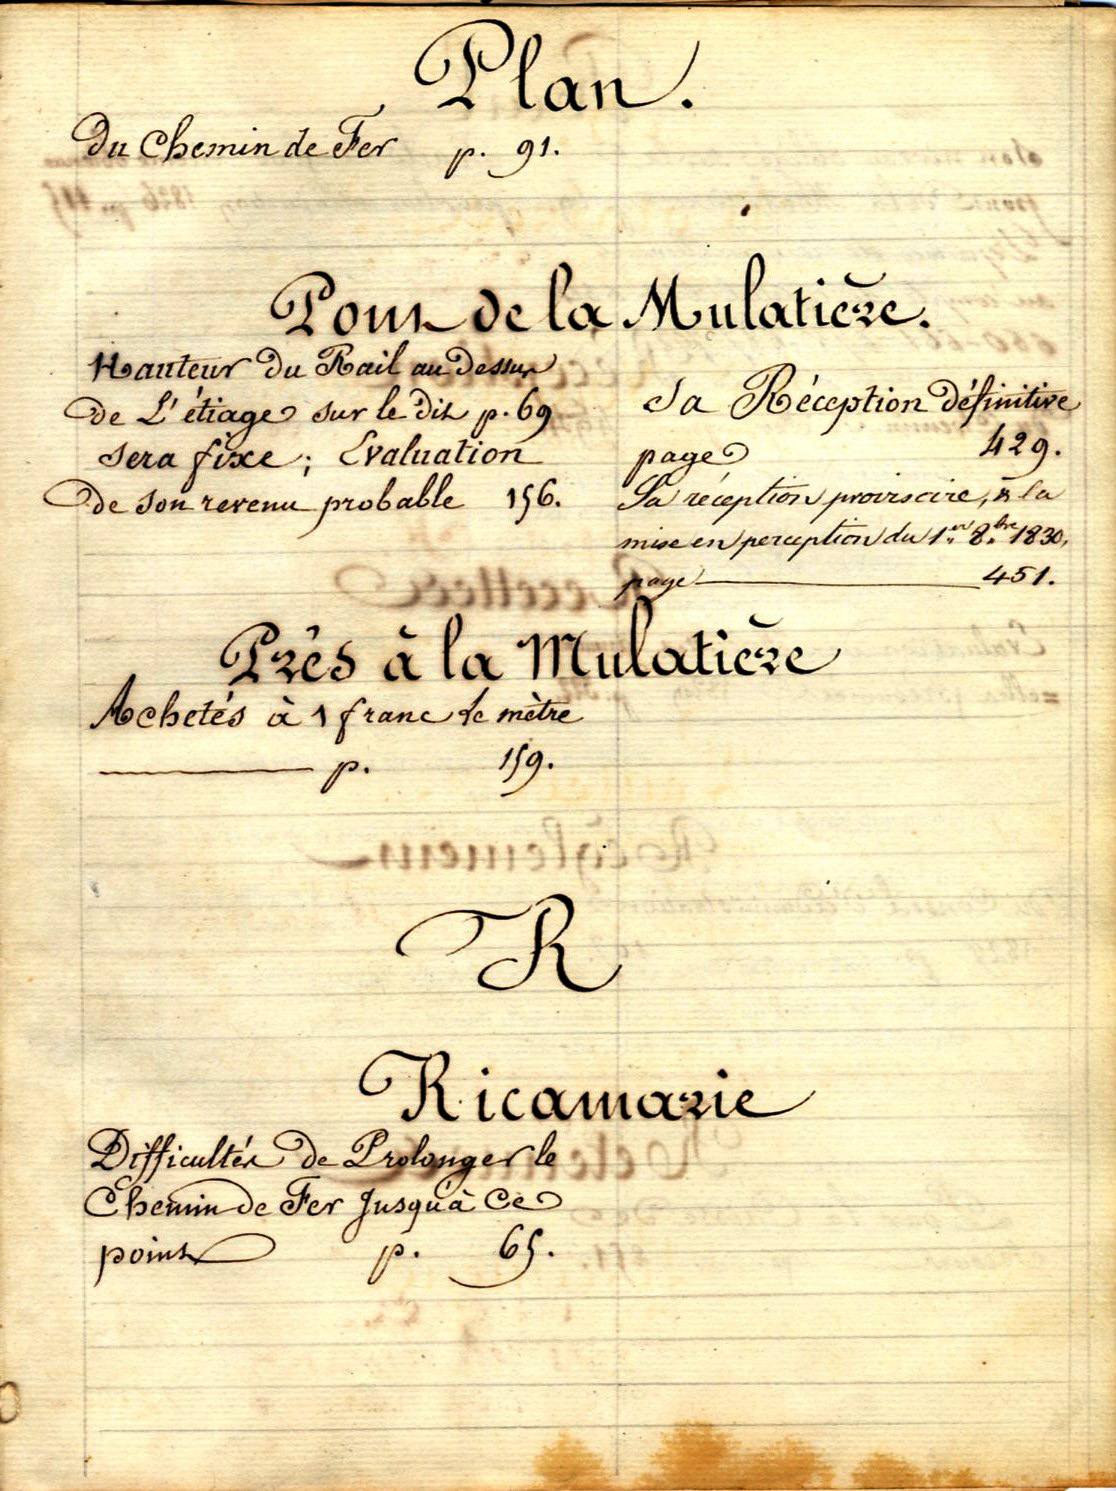 Plan.
Du Chemin de Fer p. 91.
Pont de la Mulatière.
Hauteur du Rail au dessus
de L'étiage sur le dit p. 69
sera fixe; Evaluation
de son revenu probable 156.
Sa Réception définitive
page 429.
Sa réception provisoire, & la
mise en perception du 1er 8bre 1830,
page 451.
Prés à la Mulatière
Achetés à 1 franc le mètre
p. 159.
R
Ricamarie
Difficultés de Prolonger le
Chemin de Fer Jusqu'à Ce
point p. 65.